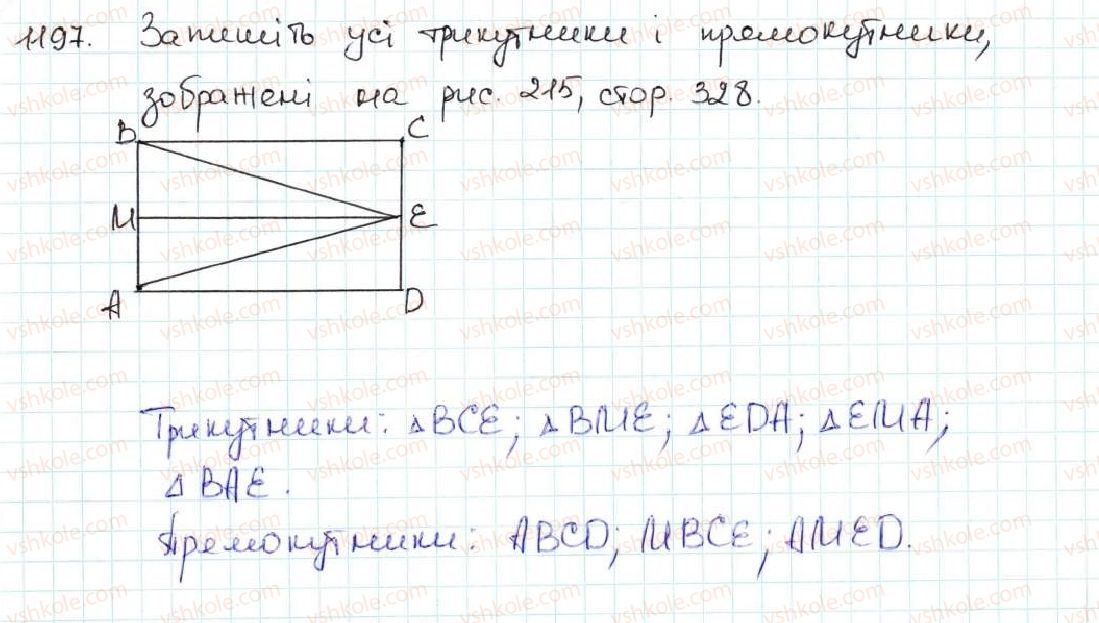 1197. Запишіть усі трикутники і прямокутники,
зображені на рис. 215, стор. 328.
B C
M E
A D
Трикутники: △BCE; △BME; △EDA; △EMA;
△BAE.
Прямокутники: ABCD; MBCE; AMED.